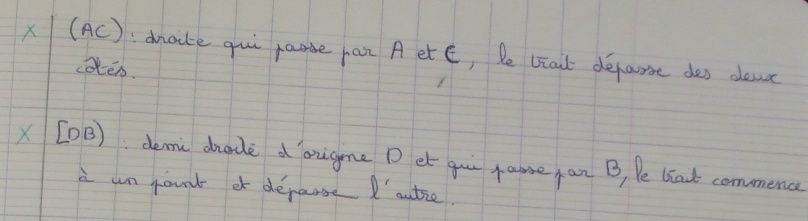 x (AC) : droite qui passe par A et C, le trait dépasse des deux
côtés.
x [DB) : demi droite d'origine D et qui passe par B, le trait commence
à un point et dépasse l'autre.